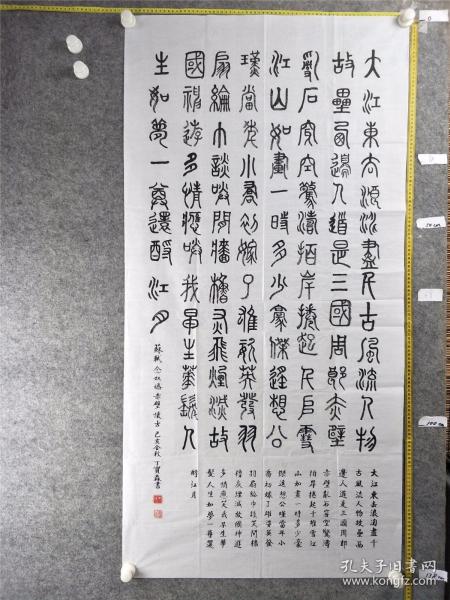 大江東去浪淘盡千古風流人物
故壘西邊人道是三國周郎赤壁
亂石穿空驚濤拍岸捲起千堆雪
江山如畫一時多少豪傑遙想公
瑾當年小喬初嫁了雄姿英發羽
扇綸巾談笑間檣櫓灰飛煙滅故
國神遊多情應笑我早生華髮人
生如夢一尊還酹江月
蘇軾念奴嬌赤壁懷古 己亥金秋丁寶森書
大江東去浪淘盡千
古風流人物故壘西
邊人道是三國周郎
赤壁亂石穿空驚濤
拍岸捲起千堆雪江
山如畫一時多少豪
傑遙想公瑾當年小
喬初嫁了雄姿英發
羽扇綸巾談笑間檣
櫓灰飛煙滅故國神遊
多情應笑我早生華
髮人生如夢一尊還
酹江月
0
50cm
100cm
孔夫子旧书网